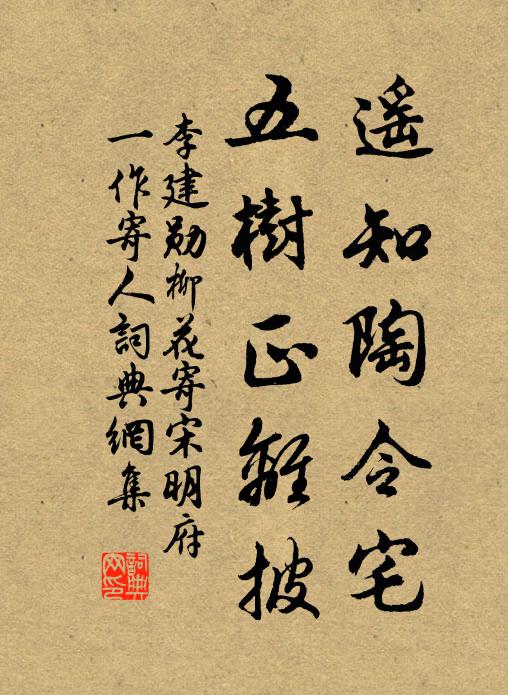 遥知陶令宅
五樹正離披
李建勛柳花寄宋明府
一作寄人詞典網集
詞典網印